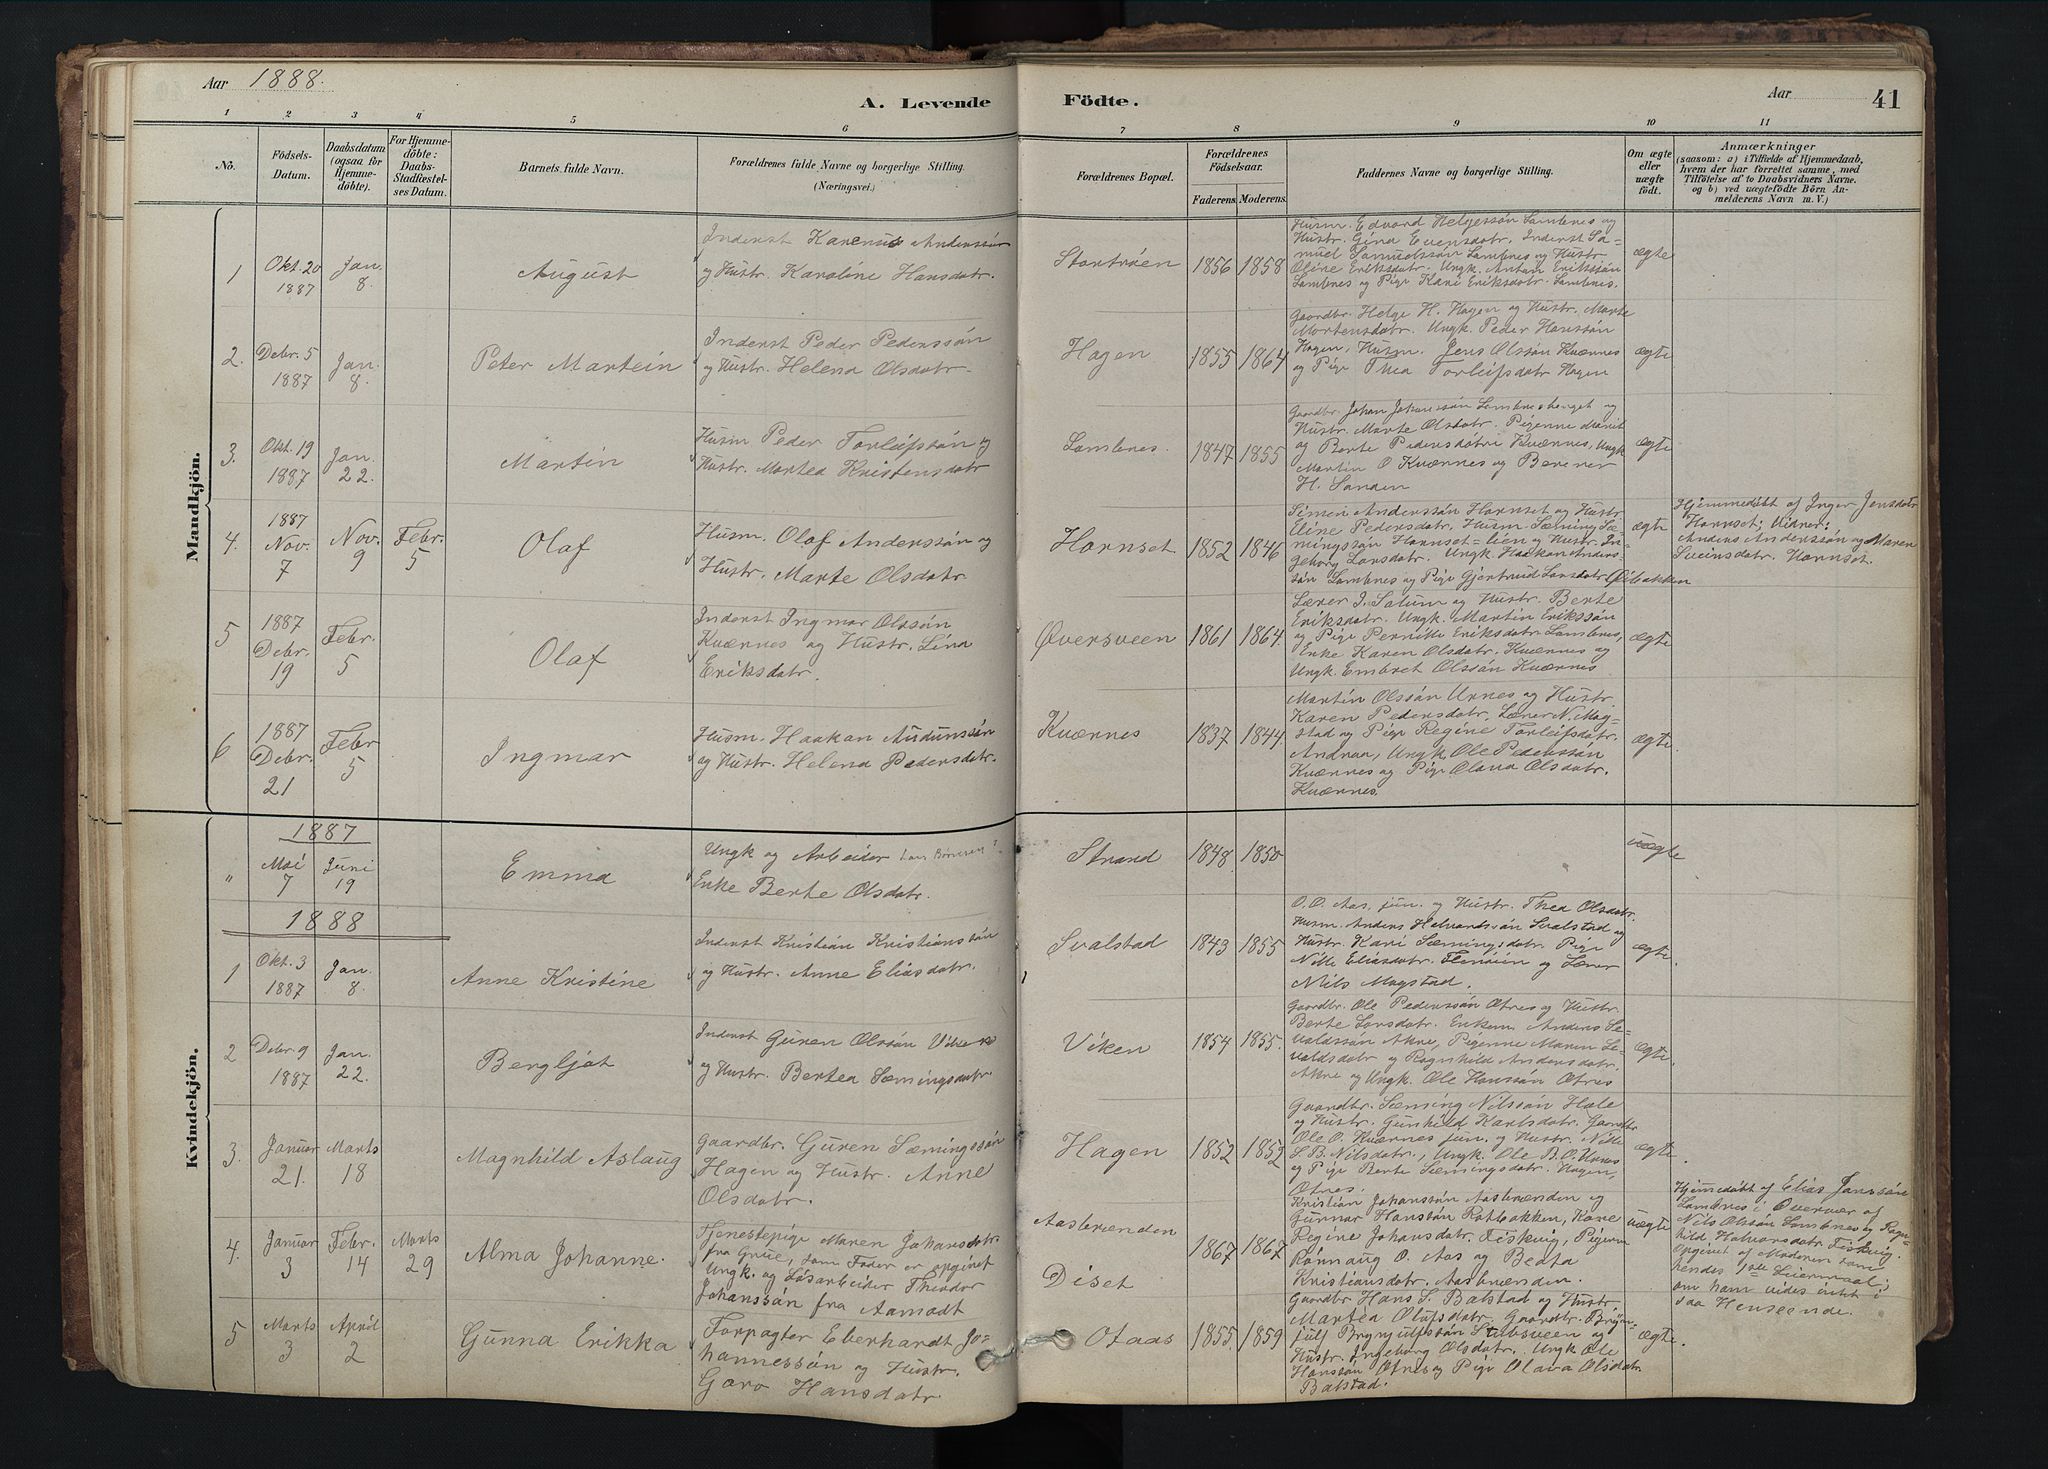 Aar 1888.
A. Levende Födte.
Aar 41
1 2 3 4 5 6 7 8 9 10 11
No.
Födsels-
Datum.
Daabsdatum
(ogsaa for
Hjemme-
döbte).
For Hjemme-
döbte:
Daabs-
Stadfæstel-
ses Datum.
Barnets fulde Navn.
Forældrenes fulde Navne og borgerlige Stilling.
(Næringsvei.)
Forældrenes Bopæl.
Forældrenes
Födselsaar.
Faderens. Moderens.
Faddernes Navne og borgerlige Stilling.
Om ægte
eller
uægte
födt.
Anmærkninger
(saasom: a) i Tilfælde af Hjemmedaab,
hvem der har forrettet samme, med
Tilföielse af to Daabsvidners Navne.
og b) ved uægtefödte Börn An-
melderens Navn m. V.)
Mandkjön.
1
Okt. 20
1887
Jan.
8.
August
Inderst Karenus Anderssön
og Hustr. Karoline Hansdatr.
Stortröen
1856 1858
Husm. Edvard Helgessön Lombnes og
Hustr. Gina Evensdatr. Inderst Sa-
muel Samuelssön Lombnes og Hustr.
Oline Eriksdatr. Ungk. Anton Erikssön
Lombnes og Pige Kari Eriksdatr. Lombnes.
ægte
2.
Debr. 5
1887
Jan.
8.
Peter Martein
Inderst Peder Pederssön
og Hustr. Helena Olsdatr.
Hagen
1855 1864
Gaardbr. Helge H. Hagen og Hustr. Marte
Mortensdatr. Ungk. Peder Hanssön
Hagen, Husm. Jens Olssön Kværnes
og Pige Thea Torleifsdatr. Hagen
ægte
3.
Okt. 19
1887
Jan.
22.
Martin
Husm Peder Torleifssön og
Hustr. Martea Kristensdatr
Lombnes.
1847 1855
Gaardbr. Johan Johanssön Lombneshaget og
Hustr. Marte Olsdatr. Pigerne Marit
og Berte Pedersdatr. Kværnes, Ungk
Martin O Kværnes og Berener
H. Sanden
ægte
4.
1887
Nov.
7
Nov.
9
Febr.
5
Olaf
Husm. Olaf Anderssön og
Hustr. Marte Olsdatr.
Hornset
1852 1846
Simen Anderssön Hornset og Hustr.
Eline Pedersdatr. Husm. Sæming Sæ-
mingssön Hornset-lien og Hustr. In-
geborg Larsdatr. Ungk. Haakon Anders
sön Lombnes og Pige Gjertrud Larsdatr. Öibakken
ægte
Hjemmedöbt af Inger Jensdatr
Hornset; Vidner:
Anders Anderssön og Maren
Sveinsdatr. Hornset.
5
1887
Debr.
19
Febr.
5
Olaf
Inderst Ingmar Olssön
Kværnes og Hustr. Lina
Eriksdatr.
Översveen
1861 1864.
Lærer J. Solum og Hustr. Berte
Eriksdatr. Ungk. Martin Erikssön
og Pige Pernille Eriksdatr. Lombnes,
Enke Karen Olsdatr. Kværnes og
Ungk. Embret Olssön Kværnes
ægte
6
1887
Debr.
21
Febr
5
Ingmar
Husm. Haakan Audunssön
og Hustr. Helena Pedersdatr.
Kværnes
1837 1844.
Martin Olssön Urnes og Hustr.
Karen Pedersdatr. Lærer N. Mag-
stad og Pige Regine Torleifsdatr.
Andraa, Ungk. Ole Pederssön
Kværnes og Pige Olava Olsdatr.
Kværnes.
ægte.
Kvindekjön.
1887
"
Mai
7
Juni
19
Emma
Ungk og Arbeider
Enke Berte Olsdatr.
Strand
1848 1850
uægte
1888
1
Okt. 3
1887
Jan.
8.
Anne Kristine
Inderst Kristian Kristianssön
og Hustr. Anne Eliasdatr.
Svalstad
1843 1855
O. O. Aas, jun. og Hustr. Thea Olsdatr.
Husm. Anders Halvorssön Svalstad og
Hustr. Kari Sæmingsdatr. Pige
Nille Eliasdatr. og Lærer
Nils Magstad.
ægte.
2
Debr. 9
1887
Jan.
22.
Bergljot
Inderst Guren Olssön Viken
og Hustr. Bertea Sæmingsdatr.
Viken
1854 1855.
Gaardbr. Ole Pederssön Otnes og Hustr.
Berte Larsdatr. Enkem. Anders Se-
valdssön Akre, Pigerne Maren Se-
valdsdatr og Ragnhild Andersdatr.
Akre og Ungk. Ole Hanssön Otnes
ægte.
3.
Januar
21.
Marts
18
Magnhild Aslaug
Gaardbr. Guren Sæmingssön
Hagen og Hustr. Anne
Olsdatr.
Hagen
1852 1859
Gaardbr. Sæming Nilssön Hole
og Hustr. Gunhild Karlsdatr. Gaardbr
Ole O. Kværnes jun. og Hustr. Nille
S B. Nilsdatr., Ungk. Ole B. O. Urnes
og Pige Berte Sæmingsdatr. Hagen,
Otnes.
ægte.
4.
Januar
3
Febr.
14
Marts
29
Alma Johanne.
Tjenestepige Maren Johansdatr.
fra Grue, som Fader er opgivet
Ungk. og Lösarbeider Theodor
Johanssön fra Aamodt
Aasbrænden
Diset
1867 1867
Kristian Johanssön Aasbrænden og
Gunnar Hanssön Rotbakken, Kone
Regine Johansdatr. Fiskvig, Pigerne
Rönnaug O. Aas og Beata
Kristiansdatr. Aasbrænden.
uægte
Hjemmedöbt af Elias Janssön
Lombnes i Overvær af
Nils Olssön Lombnes og Ragn-
hild Halvorsdatr. Fiskvig.
Opgivet af Moderen som
hendes 1ste Leiermaal;
om ham vides intet i
saa Henseende.
5
Marts
3
April
2
Gunna Erikka
Forpagter Eberhardt Jo-
hannessön og Hustr.
Goro Hansdatr.
Otaas
1855. 1859
Gaardbr. Hans S. Bolstad og Hustr
Martea Olafsdatr. Gaardbr. Bryn-
julf Brynjulfssön Stubsveen og
Hustr. Ingeborg Olsdatr. Ungk Ole
Hanssön Otnes og Pige Olava Olsdatr
Bolstad.
ægte.